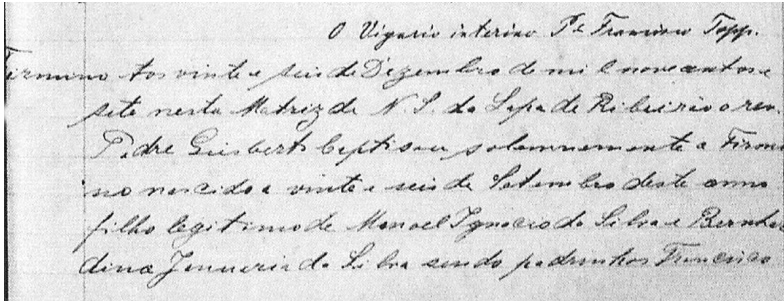 O Vigario interino Pe Francisco Topp.
Firmino Aos vinte e seis de Dezembro de mil novecentos e
sete nesta Matriz de N. S. da Lapa de Ribeirão o rev.
Padre Gisbert baptisou solemnemente a Firmi
no nascido a vinte e seis de Setembro deste anno
filho legitimo de Manoel Ignacio da Silva e Bernhar
dina Januaria da Silva sendo padrinhos Francisco